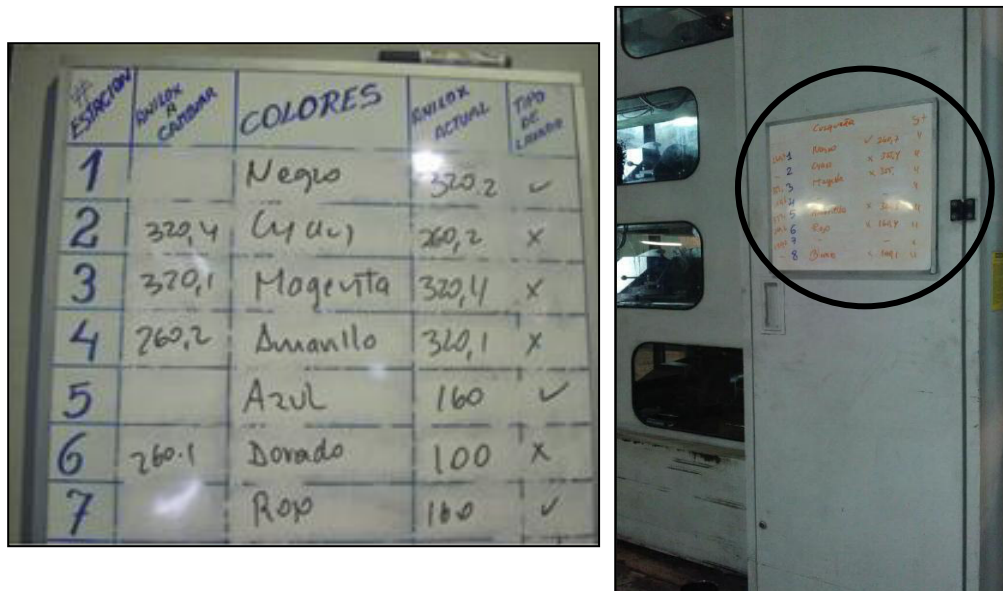 # ESTACION ANILOX A CAMBIAR COLORES ANILOX ACTUAL TIPO DE LAVADO
1 Negro 320.2 ✓
2 320,4 Cyan 260,2 X
3 320,1 Magenta 320,4 X
4 260,2 Amarillo 320,1 X
5 Azul 160 ✓
6 260.1 Dorado 100 X
7 Rojo 160 ✓
1 Negro ✓
2 Cyan x
3 Magenta x
5 Amarillo x
6 Rojo x
7
8 x